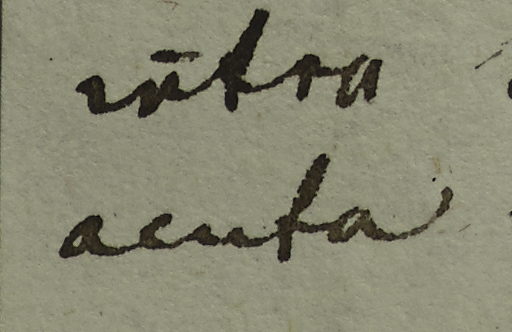 intra
acuta